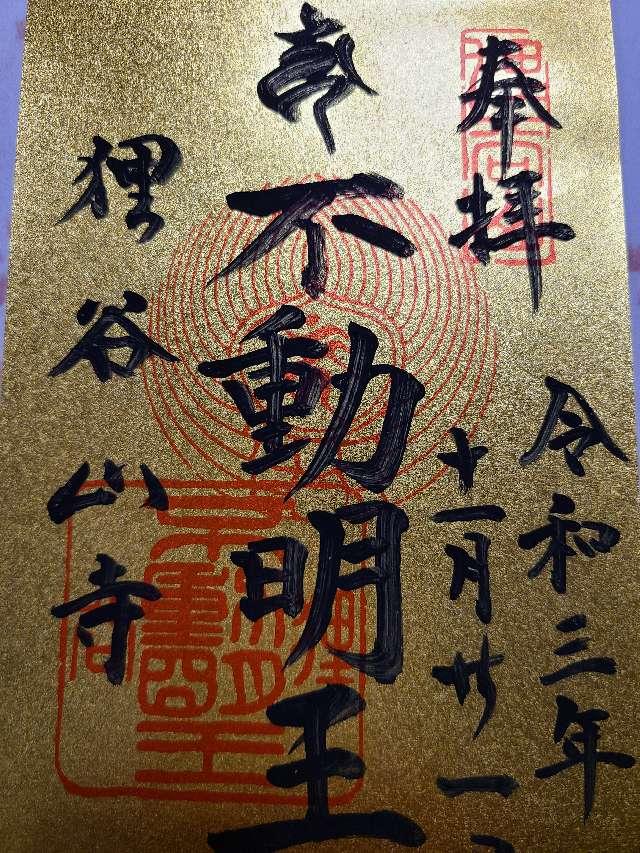 奉拝
令和三年
十一月廿一日
不動明王
狸谷山寺